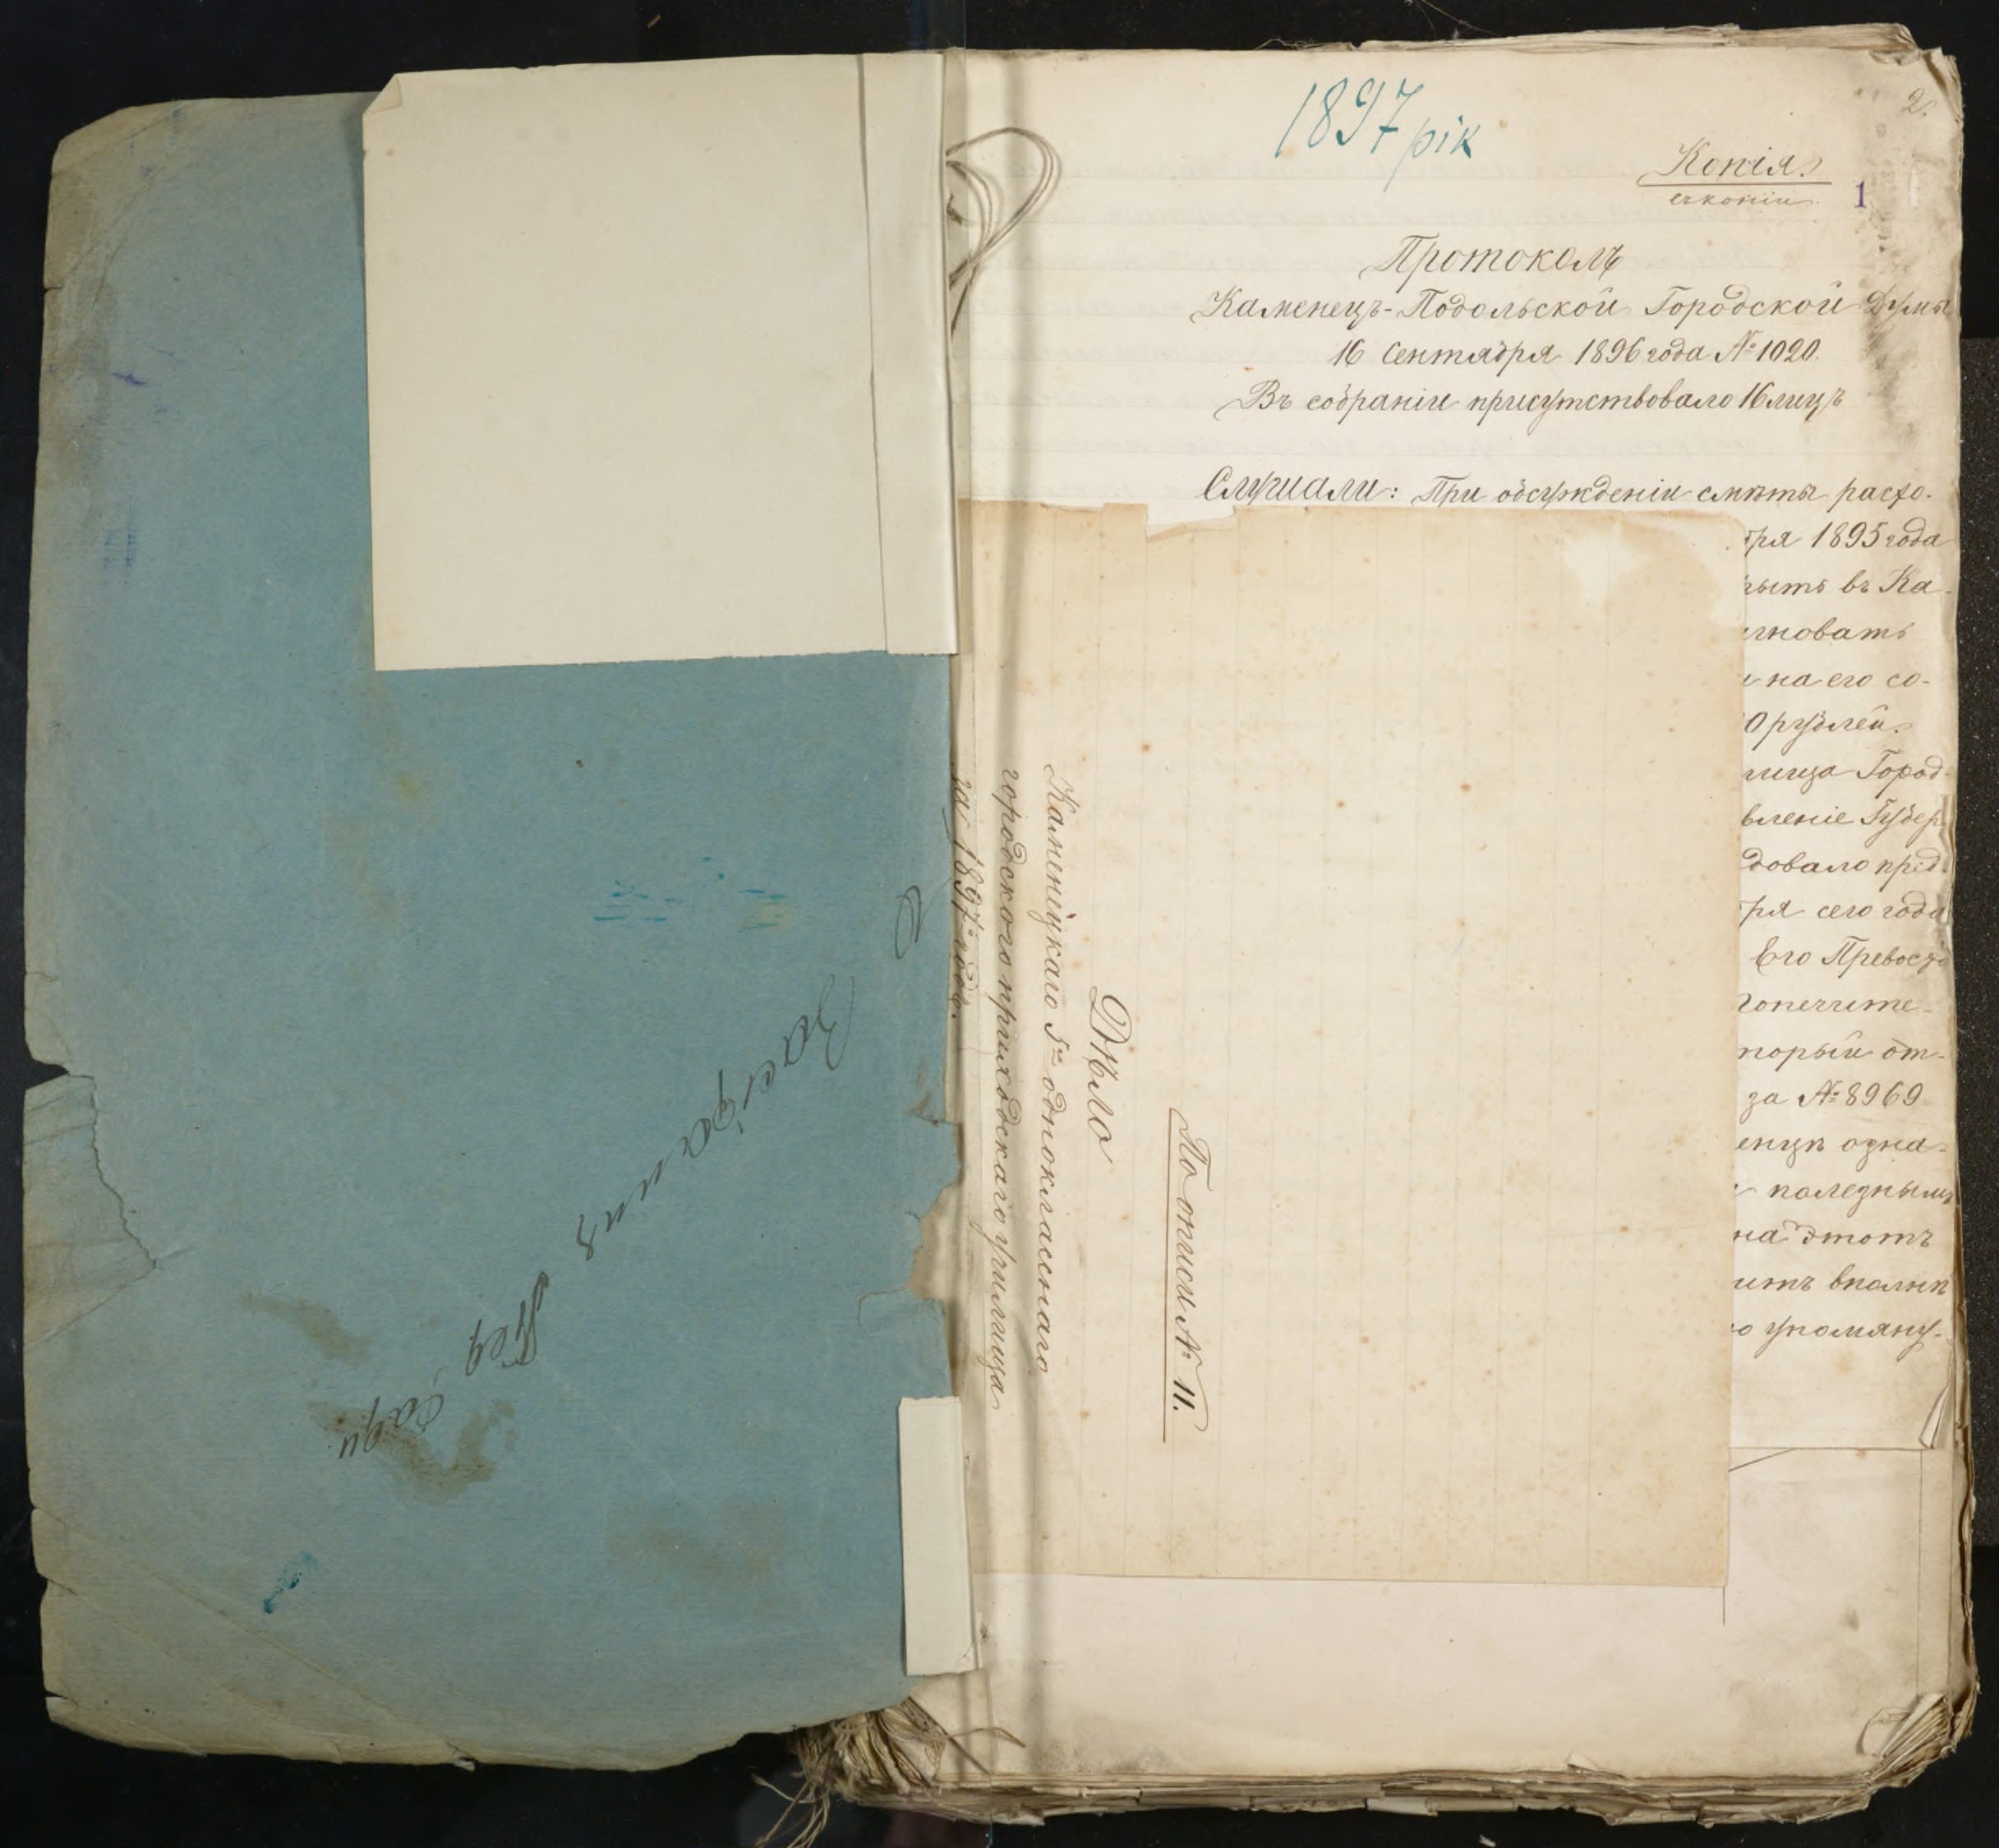 1897 рік
2.
Копія.
съ копіи.
1
Протоколъ
Каменецъ-Подольской Городской Думы
16 Сентября 1896 года № 1020.
Въ собраніи присутствовало 16 лицъ
Слушали: При обсужденіи смѣты расхо-
бря 1895 года
рыть въ Ка-
на его со-
0 рублей.
лища Город-
вленіе Губер-
довало пред-
бря сего года
Его Превосхо
попечите-
торый от-
за № 8969
енцѣ одна-
полезнымъ
на этотъ
итъ вполнѣ
о упомяну-
По описи № 11.
Дѣло
Каменецкаго 5го однокласснаго
городского приходскаго училища
за 1897 годъ.